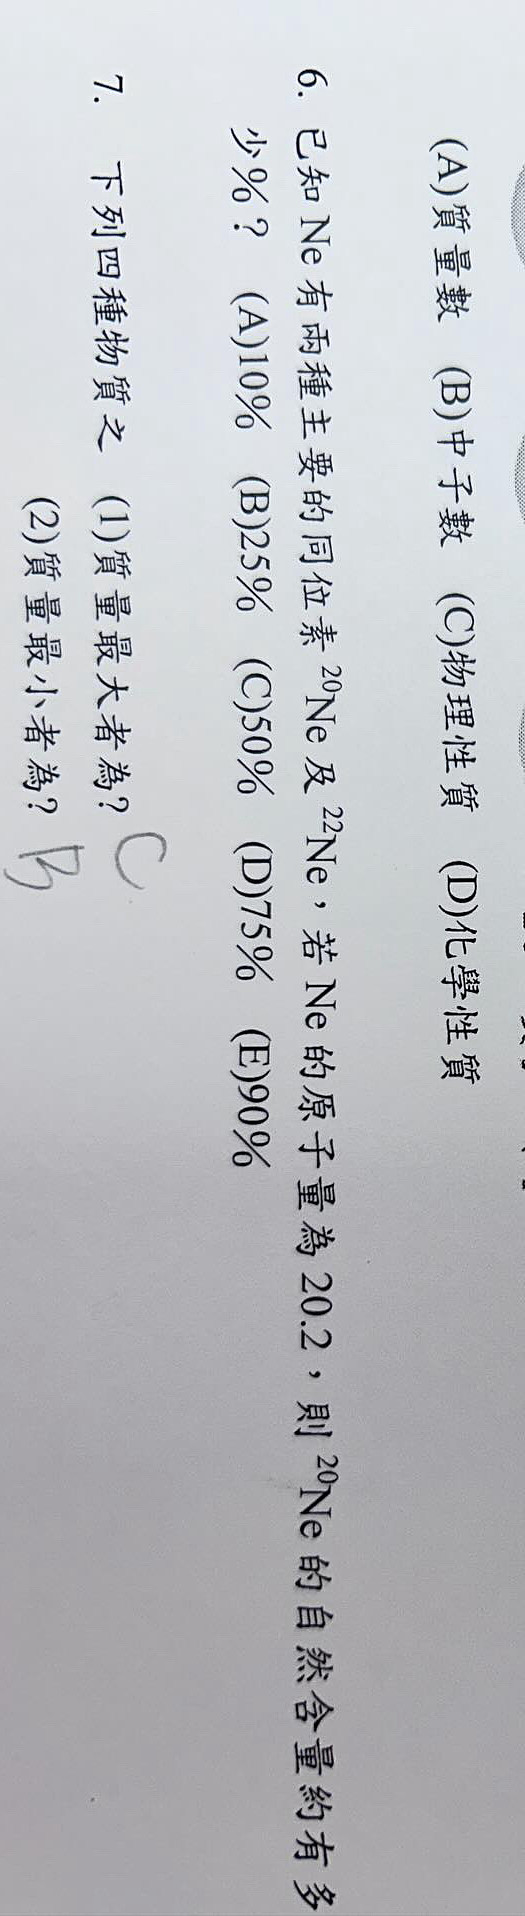 (A)質量數 (B)中子數 (C)物理性質 (D)化學性質
6. 已知 Ne 有兩種主要的同位素 ²⁰Ne 及 ²²Ne，若 Ne 的原子量為 20.2，則 ²⁰Ne 的自然含量約有多
少%？ (A)10% (B)25% (C)50% (D)75% (E)90%
7. 下列四種物質之 (1)質量最大者為？ C
(2)質量最小者為？ B